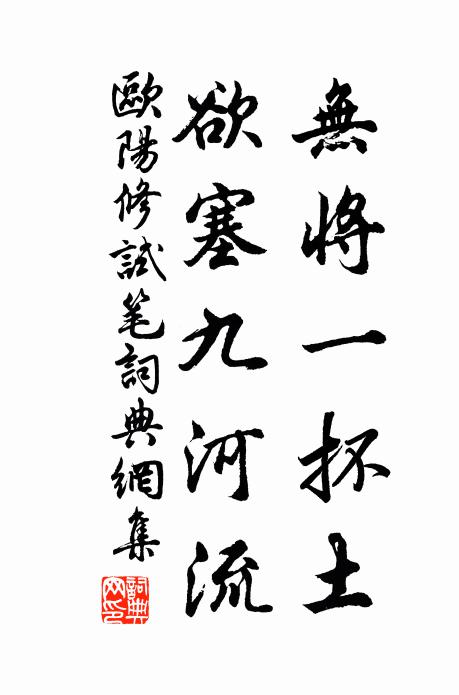 無將一抔土
欲塞九河流
歐陽修試笔詞典網集
詞典
网印